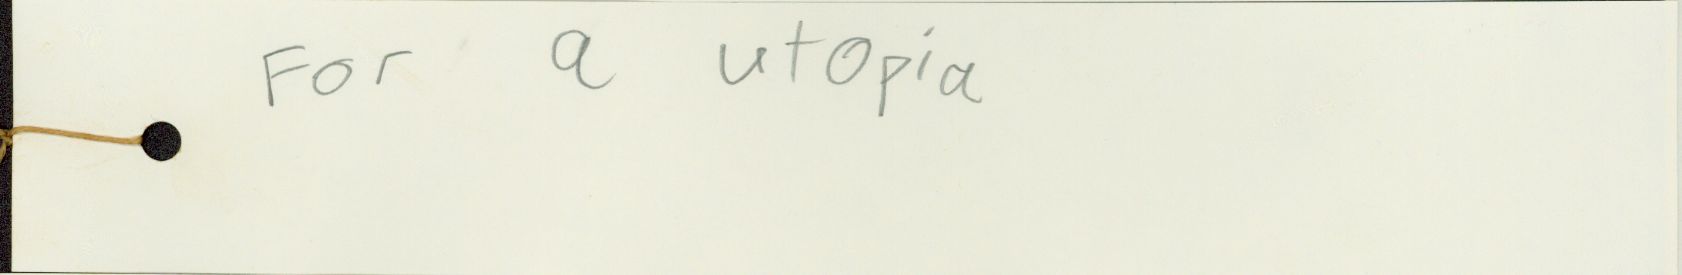 For a utopia